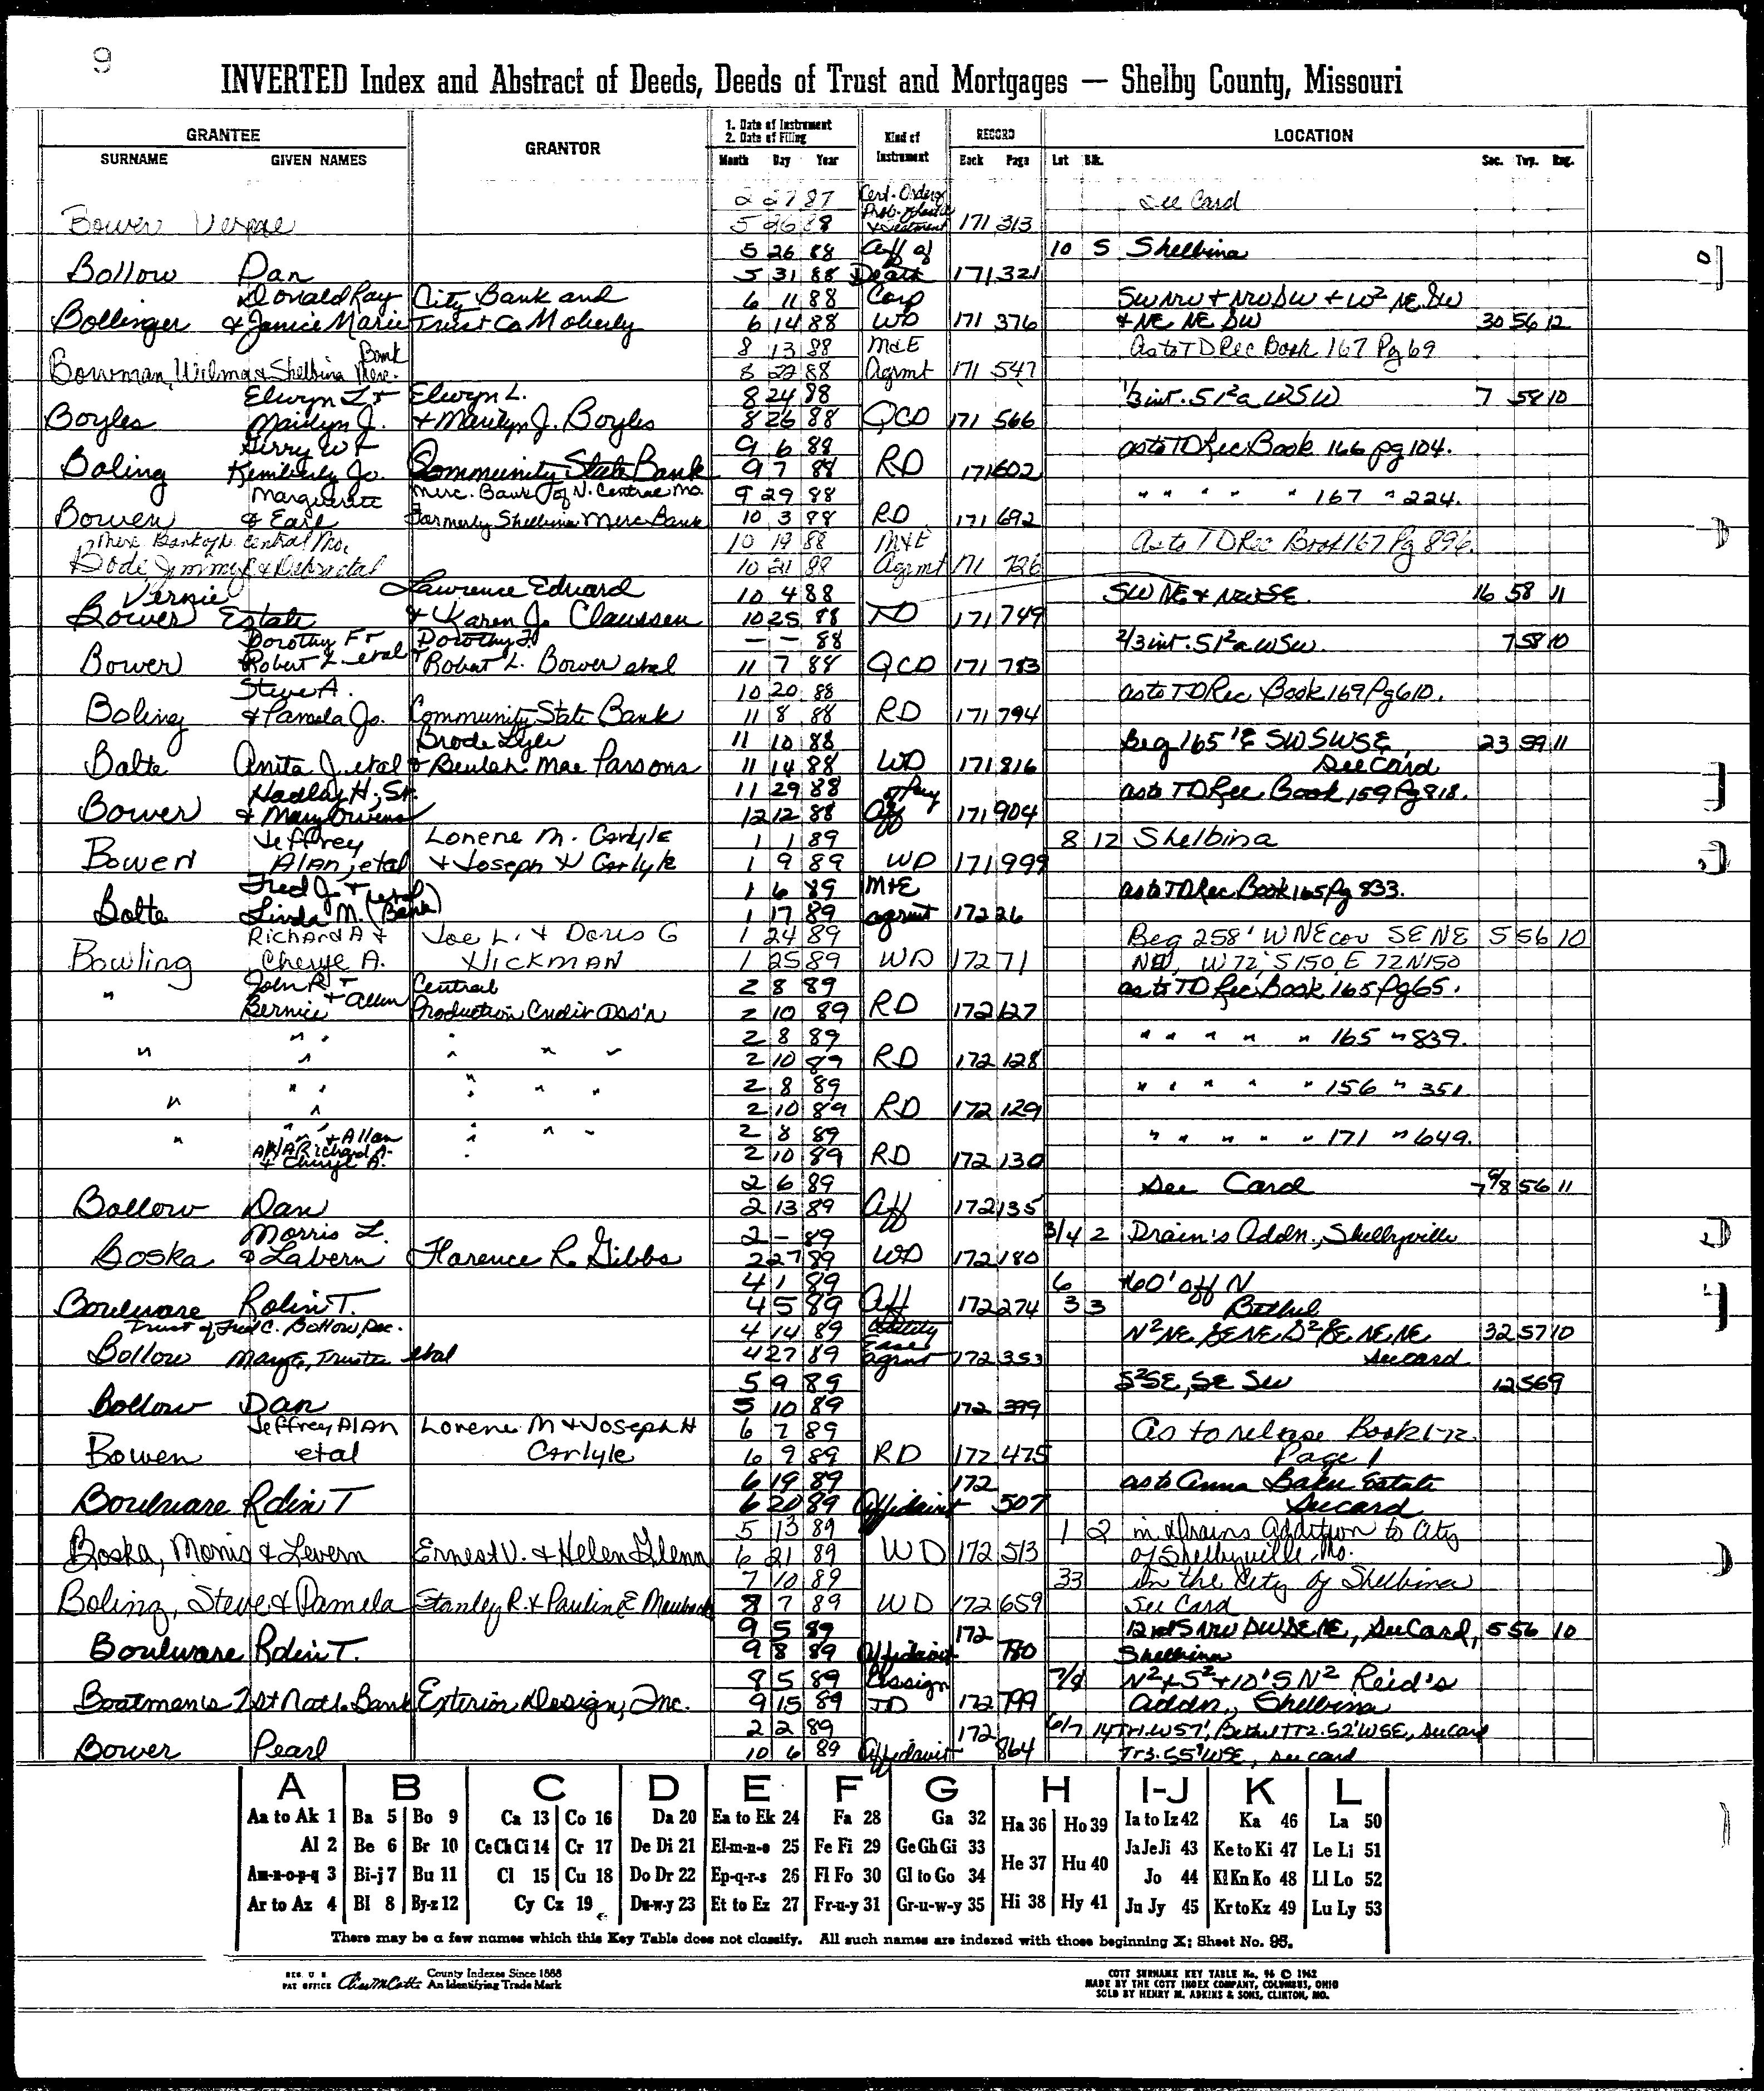 9
INVERTED Index and Abstract of Deeds, Deeds of Trust and Mortgages — Shelby County, Missouri
GRANTEE GRANTOR 1. Date of Instrument 2. Date of Filing Kind of Instrument RECORD LOCATION
SURNAME GIVEN NAMES Month Day Year Book Page Lot Blk. Sec. Twp. Rng.
2 27 87 Cert. Order of See Card
Bower 5 26 88 171 313
5 26 88 Aff of 10 5 Shelbina
Bollow Dan 5 31 88 Death 171 321
Donald Ray City Bank and 6 11 88 Corp SW NW + NW SW + W² NE SW
Bollinger & Janice Marie Trust Co Moberly 6 14 88 WD 171 376 + NE NE SW 30 56 12
Bank 8 13 88 M&E As to TD Rec Book 167 Pg 69
Bowman, Wilma & Shelbina Merc. 8 22 88 Agrmt 171 547
Elwyn L + Elwyn L. 8 24 88 1/3 int. 51²a WSW 7 58 10
Boyles Marilyn J. + Marilyn J. Boyles 8 26 88 QCD 171 566
Gerry W + 9 6 88 as to TD Rec Book 166 pg 104.
Boling Kimberly Jo. Community State Bank 9 7 88 RD 171 602
Marguerite Merc. Bank of N. Central Mo. 9 29 88 " " " " " 167 " 224.
Bowen & Earl Formerly Shelbina Merc Bank 10 3 88 RD 171 692
Merc Bank of N. Central Mo. 10 19 88 M&E As to TD Rec Book 167 Pg 896.
Bode, Jimmy & Debra etal 10 21 88 Agrmt 171 726
Vernie Lawrence Edward 10 4 88 SW NE & NW SE. 16 58 11
Bower Estate & Karen J. Claussen 10 25 88 TD 171 749
Dorothy F + Dorothy F. — — 88 2/3 int. 51²a WSW. 7 58 10
Bower Robert L. etal + Robert L. Bower etal 11 7 88 QCD 171 783
Steve A. 10 20 88 as to TD Rec Book 169 Pg 610.
Boling & Pamela Jo. Community State Bank 11 8 88 RD 171 794
Brode Lyle 11 10 88 Beg 165'E SW SW SE, 23 59 11
Bolte Anita J. etal & Beulah Mae Parsons 11 14 88 WD 171 816 See Card
Hadley H., Sr. 11 29 88 as to TD Rec Book 159 Pg 818.
Bower & Mary Owens 12 12 88 Aff 171 904
Jeffrey Lorene M. Carlyle 1 1 89 8 12 Shelbina
Bowen Alan, etal + Joseph H Carlyle 1 9 89 WD 171 999
Fred J. + (etal 1 6 89 M+E as to TD Rec Book 165 Pg 833.
Bolte Linda M. (Bank) 1 17 89 agrmt 172 26
Richard A + Joe L. + Doris G 1 24 89 Beg 258' W NE cor SE NE 5 56 10
Bowling Cheryl A. Hickman 1 25 89 WD 172 71 NW, W 72', S 150, E 72 N 150
John R + Central 2 8 89 as to TD Rec Book 165 Pg 65.
" Bernice + Allen Production Credit Ass'n 2 10 89 RD 172 127
" " 2 8 89 " " " " " 165 " 839.
" " " " " 2 10 89 RD 172 128
" " " " " 2 8 89 " " " " " 156 " 351.
" " 2 10 89 RD 172 129
" " + Allan " " " 2 8 89 " " " " " 171 " 649.
" A/K/A Richard A. + Cheryl A. 2 10 89 RD 172 130
2 6 89 See Card 7 9/8 56 11
Bollow Dan 2 13 89 Aff 172 135
Morris L. 2 – 89 3/4 2 Drain's Addn., Shelbyville
Boska & Lavern Florence R. Gibbs 2 27 89 WD 172 180
4 1 89 6 +60' off N
Boulware Rolin T. 4 5 89 Aff 172 274 3 3 Bethel
Trust of Fred C. Bollow, Dec. 4 14 89 Utility N²NE, SE NE, S² SE NE NE 32 57 10
Bollow Mary E, Trustee etal 4 27 89 Ease agrmt 172 353 See card
5 9 89 S²SE, SE SW 12 56 9
Bollow Dan 5 10 89 172 399
Jeffrey Alan Lorene M & Joseph H 6 7 89 As to release Book 172
Bowen etal Carlyle 6 9 89 RD 172 475 Page 1
6 19 89 172 as to Anna Baker Estate
Boulware Rolin T 6 20 89 Affidavit 507 See card
5 13 89 1 2 in Drains Addition to City
Boska, Morris & Levern Ernest V. & Helen Glenn 6 21 89 WD 172 513 of Shelbyville, Mo.
7 10 89 33 In the City of Shelbina
Boling, Steve & Pamela Stanley R. & Pauline E 8 7 89 WD 172 659 See Card
9 5 89 172 SW SE NE, See Card, 5 56 10
Boulware Rolin T. 9 8 89 Affidavit 780 Shelbina
8 5 89 Assign 7/8 N²+S²+10'S N² Reid's
Boatmens 1st Natl. Bank Exterior Design, Inc. 9 15 89 TD 172 799 Addn., Shelbina
2 2 89 172 6/7 14 Tr1. W57', Bethel Tr2. 52'WSE, See Card
Bower Pearl 10 6 89 Affidavit 864 Tr3. 55'WSE, see card
A B C D E F G H I-J K L
Aa to Ak 1 Ba 5 Bo 9 Ca 13 Co 16 Da 20 Ea to Ek 24 Fa 28 Ga 32 Ha 36 Ho 39 Ia to Iz 42 Ka 46 La 50
Al 2 Be 6 Br 10 Ce Ch Ci 14 Cr 17 De Di 21 El-m-n-o 25 Fe Fi 29 Ge Gh Gi 33 He 37 Hu 40 Ja Je Ji 43 Ke to Ki 47 Le Li 51
Am-n-o-p-q 3 Bi-j 7 Bu 11 Cl 15 Cu 18 Do Dr 22 Ep-q-r-s 26 Fl Fo 30 Gl to Go 34 Jo 44 Kl Kn Ko 48 Ll Lo 52
Ar to Az 4 Bl 8 By-z 12 Cy Cz 19 Du-w-y 23 Et to Ez 27 Fr-u-y 31 Gr-u-w-y 35 Hi 38 Hy 41 Ju Jy 45 Kr to Kz 49 Lu Ly 53
There may be a few names which this Key Table does not classify. All such names are indexed with those beginning X; Sheet No. 95.
REG. U S PAT OFFICE County Indexes Since 1888 An Identifying Trade Mark
COTT SURNAME KEY TABLE No. 96 © 1962
MADE BY THE COTT INDEX COMPANY, COLUMBUS, OHIO
SOLD BY HENRY M. ADKINS & SONS, CLINTON, MO.